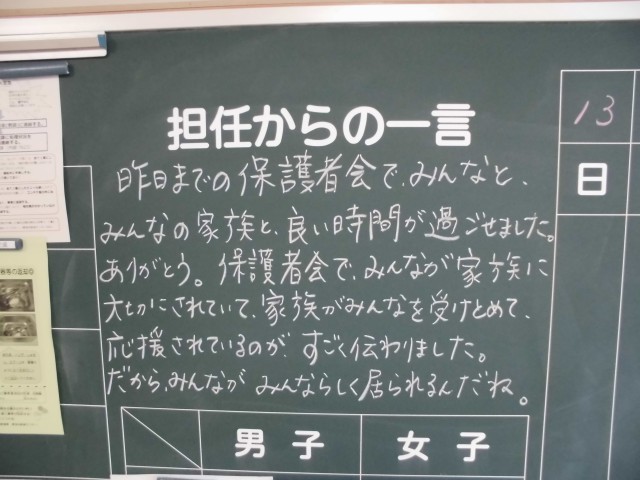 担任からの一言
昨日までの保護者会で、みんなと、
みんなの家族と、良い時間が過ごせました。
ありがとう。保護者会で、みんなが家族に
大切にされていて、家族がみんなを受けとめて、
応援されているのが、すごく伝わりました。
だから、みんなが みんならしく居られるんだね。
13
日
男子
女子